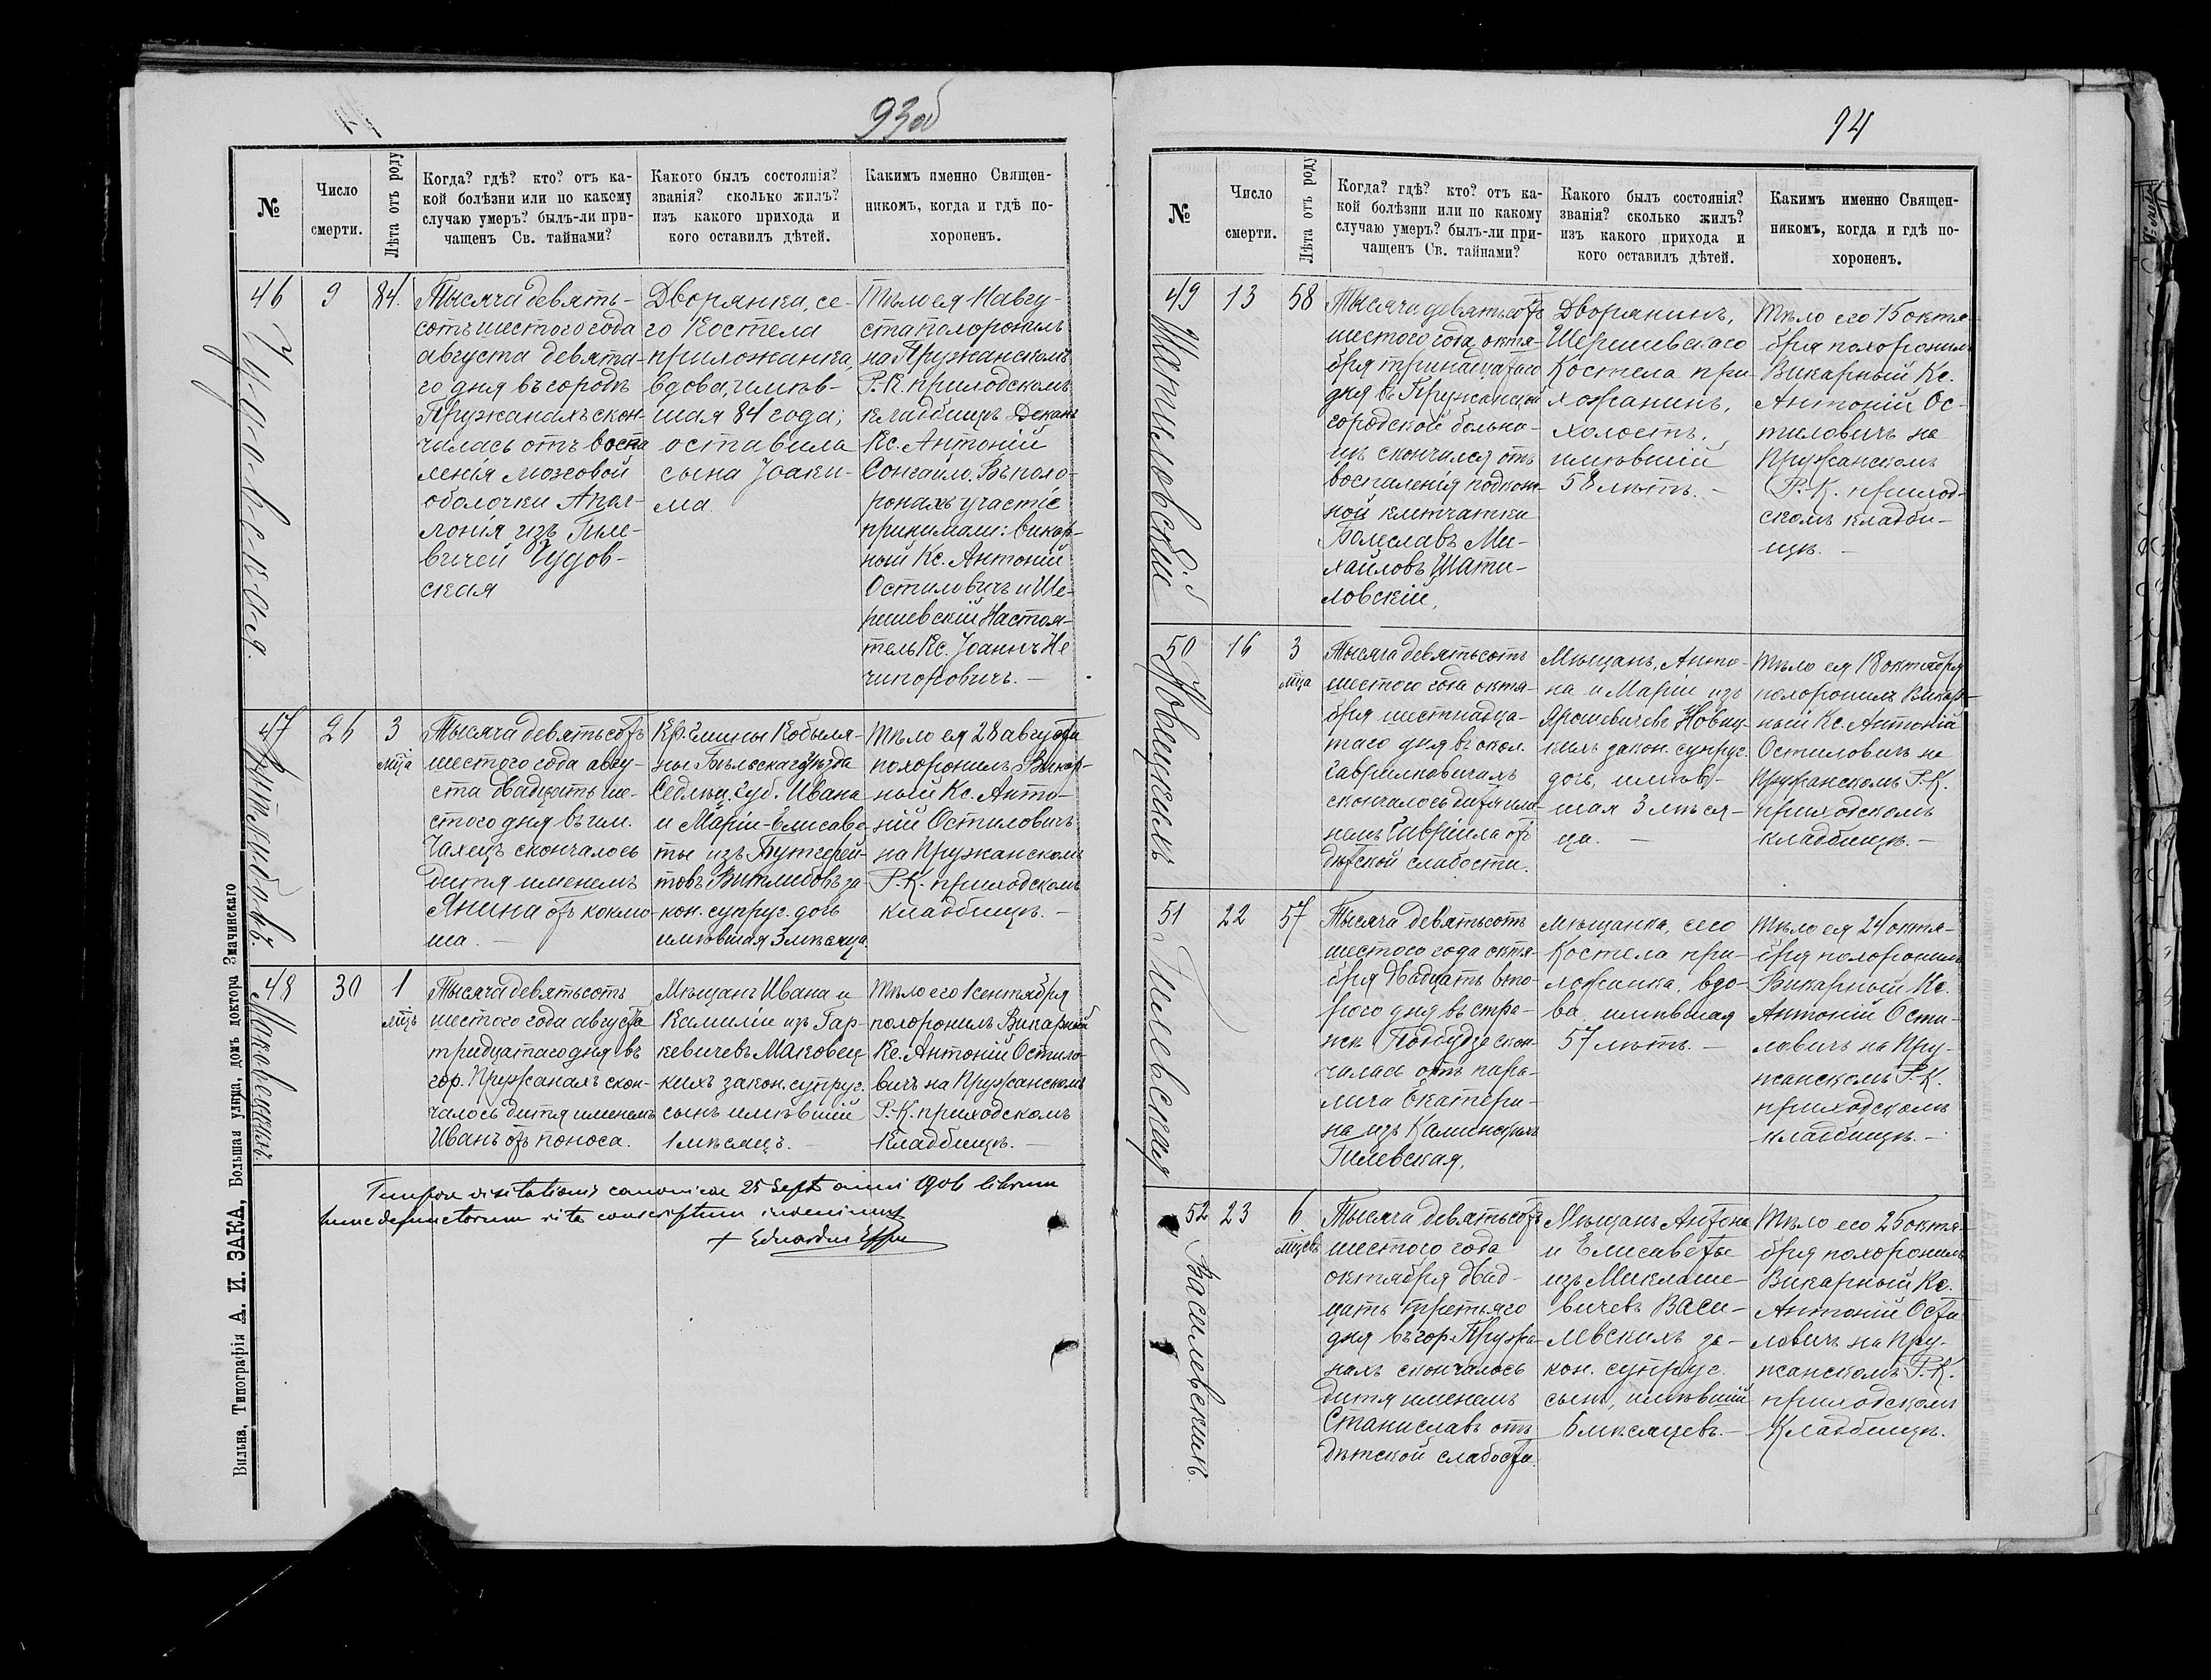 93 об
№
Число
смерти.
Лѣта отъ роду
Когда? гдѣ? кто? отъ ка-
кой болѣзни или по какому
случаю умеръ? былъ-ли при-
чащенъ Св. тайнами?
Какого былъ состоянія?
званія? сколько жилъ?
изъ какого прихода и
кого оставилъ дѣтей.
Какимъ именно Священ-
никомъ, когда и гдѣ по-
хороненъ.
46
Чудовская.
9
84.
Тысяча девять-
сотъ шестого года
августа девята-
го дня въ городѣ
Пружанахъ скон-
чалась отъ воспа
ленія мозговой
оболочки Апол-
лонія изъ
вичей Чудов-
ская
Дворянка, се-
го Костела
прихожанка,
вдова, имѣв-
шая 84 года;
оставила
сына Іоаки-
ма.
Тѣло ея 11 авгу-
ста похоронилъ
на Пружанскомъ
Р.К. приходскомъ
кладбищѣ Деканъ
Кс. Антоній
Сонгайло. Въ похо-
ронахъ участіе
принимали: викар-
ный Кс. Антоній
Остиловичъ и Ше-
решевскій Настоя-
тель Кс. Іоаннъ Не
чипоровичъ. —
47
26
3
м͞ца
Тысяча девятьсотъ
шестого года авгу-
ста двадцать ше-
стого дня въ им.
Чахецъ скончалось
дитя именемъ
Янина отъ коклю-
ша. —
Кр. Гмины Кобыля-
ны Бѣльскаго уѣзда
Сѣдлец. Губ. Ивана
и Маріи-Елисаве-
ты изъ
за-
кон. супруг. дочь
имѣвшая 3 мѣсяца
Тѣло ея 28 августа
похоронилъ Викар-
ный Кс. Анто-
ній Остиловичъ
на Пружанскомъ
Р.-К. приходскомъ
кладбищѣ. —
48
Маковецкихъ.
30
1
м͞цъ
Тысяча девятьсотъ
шестого года августа
тридцатаго дня въ
гор. Пружанахъ скон-
чалось дитя именемъ
Иванъ отъ поноса.
Мѣщанъ Ивана и
Камиліи изъ Гар-
кевичевъ Маковец-
кихъ закон. супруг.
сынъ имѣвшій
1 мѣсяцъ. —
Тѣло его 1 сентября
похоронилъ Викарный
Кс. Антоній Остило-
вичъ на Пружанскомъ
Р.-К. приходскомъ
кладбищѣ. —
Tempore visitationis canonicae 25 Sept anni 1906 librum
hunc defunctorum rite conscriptum invenimus
+ Eduardus
Вильна, Типографія А. И. ЗАКА, Большая улица, домъ доктора Змачинскаго
94
№
Число
смерти.
Лѣта отъ роду
Когда? гдѣ? кто? отъ ка-
кой болѣзни или по какому
случаю умеръ? былъ-ли при-
чащенъ Св. тайнами?
Какого былъ состоянія?
званія? сколько жилъ?
изъ какого прихода и
кого оставилъ дѣтей.
Какимъ именно Священ-
никомъ, когда и гдѣ по-
хороненъ.
49
Шатиловскій
13
58
Тысяча девятьсотъ
шестого года октя-
бря тринадцатаго
дня въ Пружанской
городской больни-
цѣ скончался отъ
воспаленія подкож-
ной клѣтчатки
Болеславъ Ми-
хайловъ Шати-
ловскій.
Дворянинъ,
Шерешевскаго
Костела при
хожанинъ,
холостъ,
имѣвшій
58 лѣтъ. —
Тѣло его 15 октя-
бря похоронилъ
Викарный Кс.
Антоній Ос-
тиловичъ на
Пружанскомъ
Р.-К. приход-
скомъ кладби-
щѣ. —
50
Новицкихъ
16
3
м͞ца
Тысяча девятьсотъ
шестого года октя-
бря шестнадца-
таго дня въ окол.
Гавриловичахъ
скончалось дитя име-
немъ Гавріила отъ
дѣтской слабости.
Мѣщанъ, Анто-
на и Маріи изъ
Ярошевичевъ Новиц-
кихъ закон. супруг.
дочь, имѣв-
шая 3 мѣся-
ца. —
Тѣло ея 18 октября
похоронилъ Викар-
ный Кс. Антоній
Остиловичъ на
Пружанскомъ Р.-К.
приходскомъ
кладбищѣ. —
51
Гилевская
22
57
Тысяча девятьсотъ
шестого года октя-
бря двадцать вто-
рого дня въ стра-
жѣ скон-
чалась отъ пара-
лича Екатери-
на изъ
Гилевская.
Мѣщанка, сего
Костела при-
хожанка, вдо-
ва, имѣвшая
57 лѣтъ. —
Тѣло ея 24 октя-
бря похоронилъ
Викарный Кс.
Антоній Ости-
ловичъ на Пру-
жанскомъ Р.-К.
приходскомъ
кладбищѣ. —
52
Василевскихъ.
23
6
м͞цевъ
Тысяча девятьсотъ
шестого года
октября двад-
цать третьяго
дня въ гор. Пружа-
нахъ скончалось
дитя именемъ
Станиславъ отъ
дѣтской слабости.
Мѣщанъ Антона
и Елисаветы
изъ Миклаше-
вичевъ Васи-
левскихъ за-
кон. супруг.
сынъ, имѣвшій
6 мѣсяцевъ. —
Тѣло его 25 октя-
бря похоронилъ
Викарный Кс.
Антоній Ости-
ловичъ на Пру-
жанскомъ Р.-К.
приходскомъ
кладбищѣ.